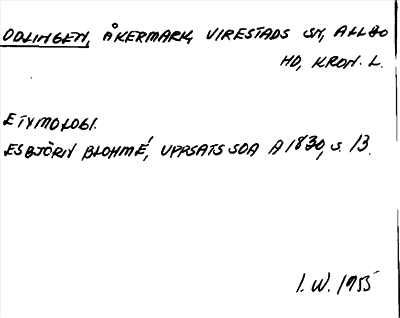 ODLINGEN, ÅKERMARK, VIRESTADS SN, ALLBO
HD, KRON. L.
ETYMOLOGI.
ESBJÖRN BLOHMÉ, UPPSATS SOA A 1830, S. 13.
I. W. 1955